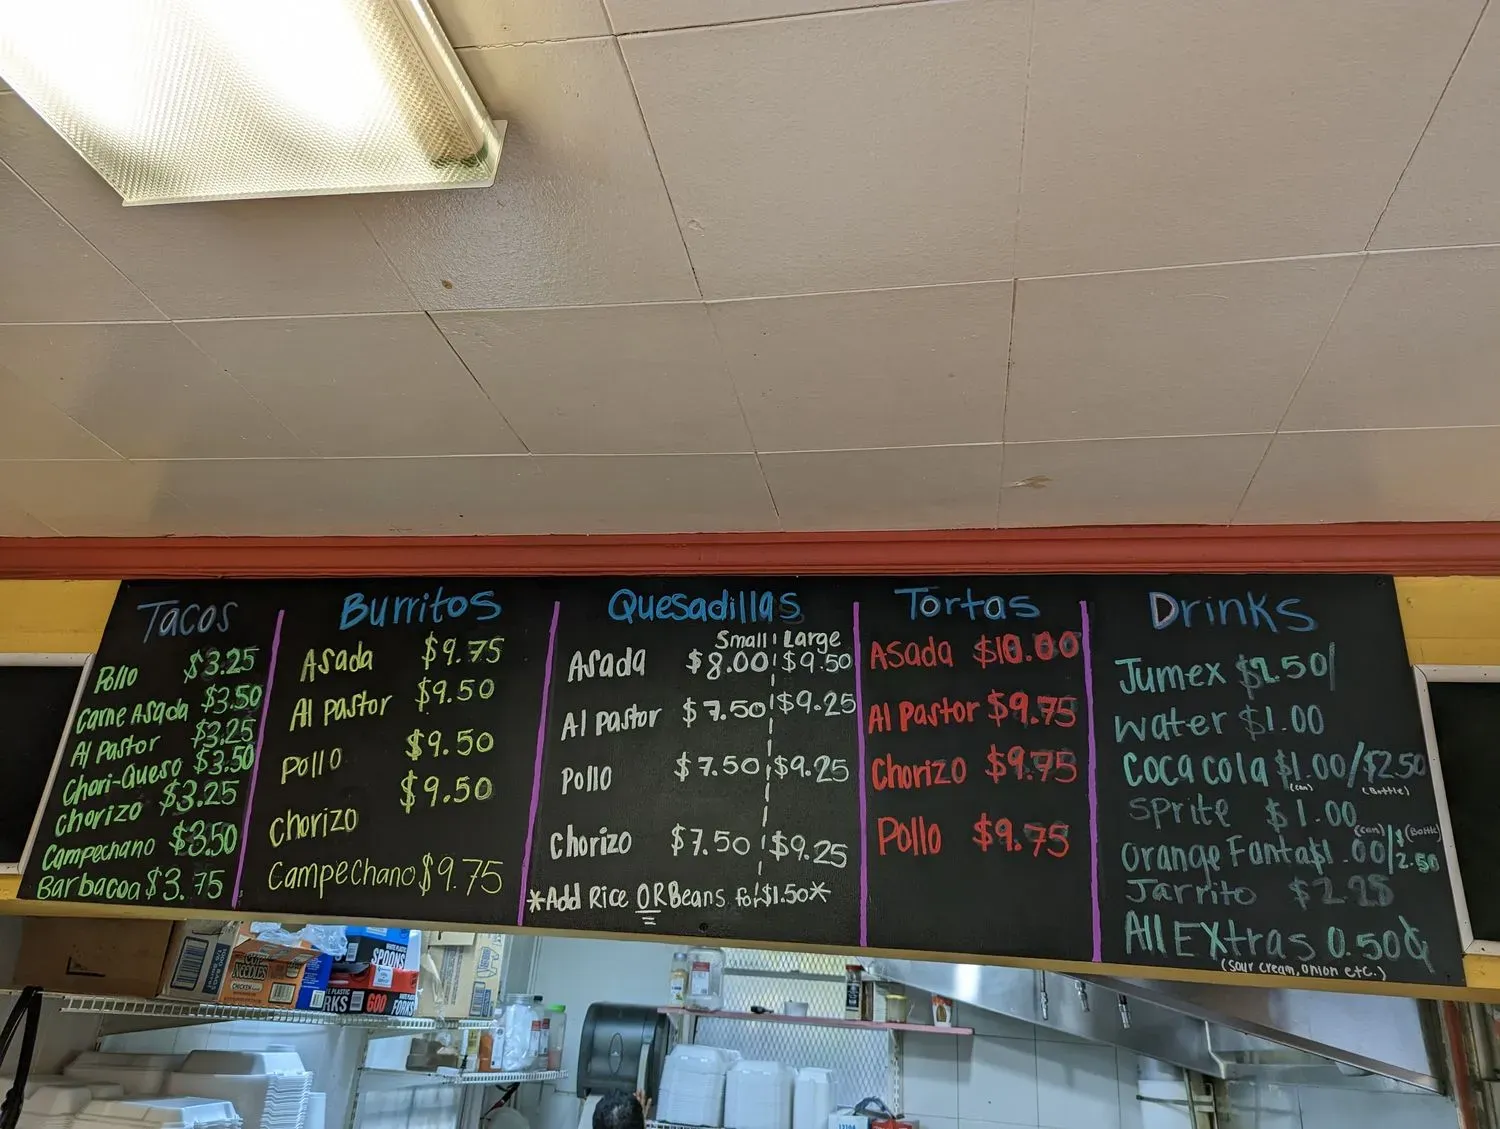 Tacos
Pollo $3.25
Carne Asada $3.50
Al Pastor $3.25
Chori-Queso $3.50
Chorizo $3.25
Campechano $3.50
Barbacoa $3.75
Burritos
Asada $9.75
Al pastor $9.50
pollo $9.50
Chorizo $9.50
Campechano $9.75
Quesadillas
Small Large
Asada $8.00 $9.50
Al pastor $7.50 $9.25
Pollo $7.50 $9.25
Chorizo $7.50 $9.25
*Add Rice OR Beans for $1.50*
Tortas
Asada $10.00
Al Pastor $9.75
Chorizo $9.75
Pollo $9.75
Drinks
Jumex
water $1.00
Coca cola $1.00/$2.50
(can) (Bottle)
Sprite $1.00
(can) (Bottle)
Orange Fanta $1.00/$2.50
Jarrito
All EXtras 0.50¢
(sour cream, onion etc.)
NOODLES
CHICKEN
SPOONS
RKS
600
FORKS